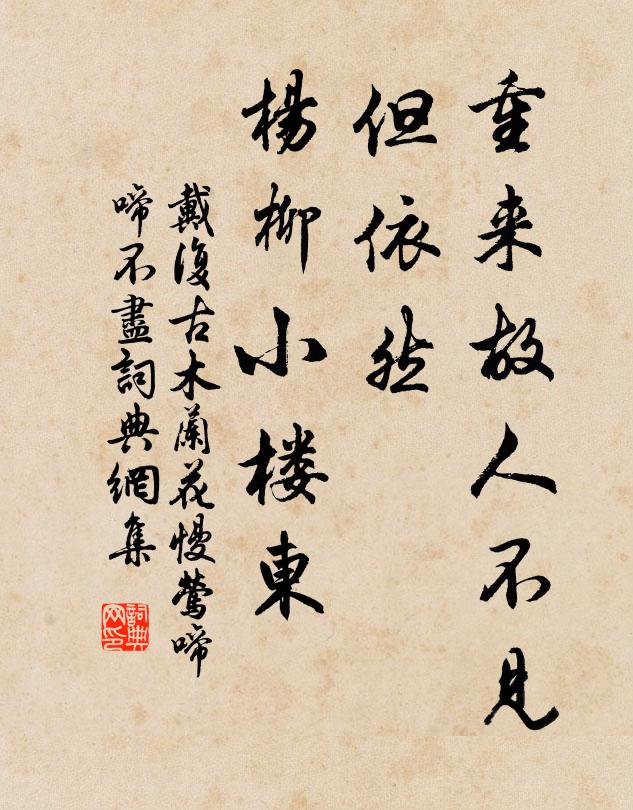 重来故人不見
但依然
楊柳小楼東
戴復古木蘭花慢鶯啼
啼不盡詞典網集
詞典
网印